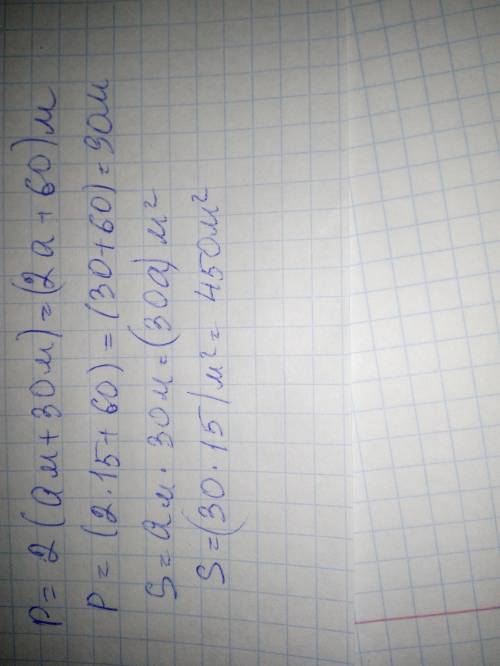 P = 2 (ам + 30м) = (2а + 60) м
P = (2·15 + 60) = (30 + 60) = 90м
S = ам · 30м = (30а) м²
S = (30 · 15) м² = 450м²